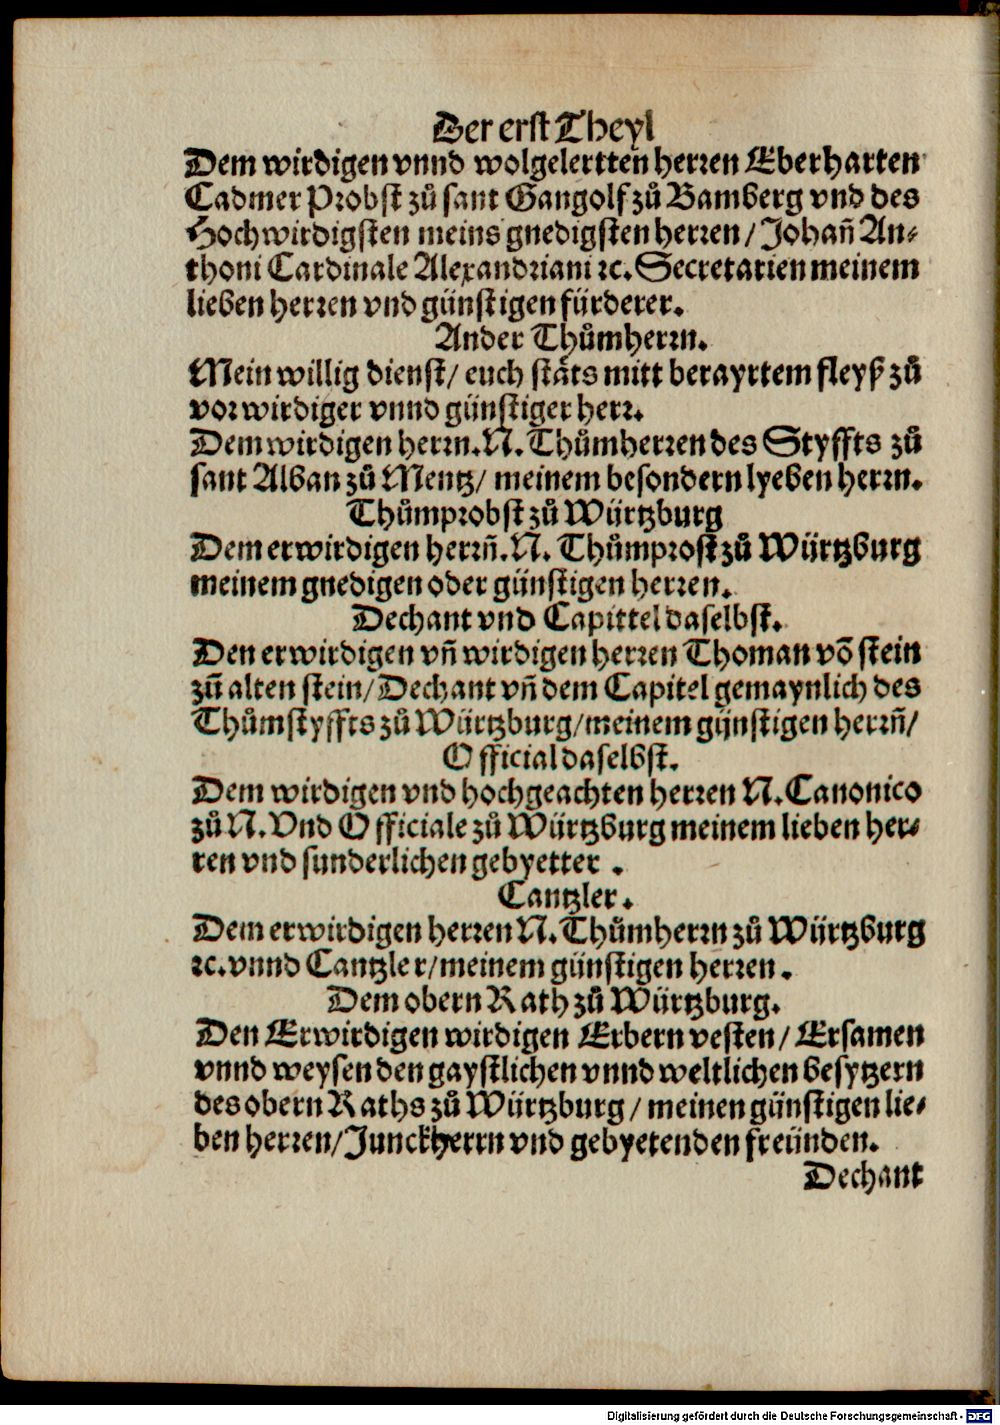 Der erst Theyl
Dem wirdigen vnnd wolgelertten herren Eberharten
Cadmer Probst zů sant Gangolf zů Bamberg vnd des
Hochwirdigsten meins gnedigsten herren / Johañ An⸗
thoni Cardinale Alexandriani ꝛc. Secretarien meinem
lieben herren vnd günstigen fürderer.
Ander Thůmherrn.
Mein willig dienst / euch stäts mitt berayrtem fleyß zů
vor wirdiger vnnd günstiger herr.
Dem wirdigen herrn. N. Thůmherren des Styffts zů
sant Alban zů Mentz / meinem besondern lyeben herrn.
Thůmprobst zů Würtzburg
Dem erwirdigen herrñ. N. Thůmprost zů Würtzburg
meinem gnedigen oder günstigen herren.
Dechant vnd Capittel daselbst.
Den erwirdigen vñ wirdigen herren Thoman võ stein
zũ alten stein / Dechant vñ dem Capitel gemaynlich des
Thůmstyffts zů Würtzburg / meinem günstigen herrñ /
Official daselbst.
Dem wirdigen vnd hochgeachten herren N. Canonico
zů N. Vnd Officiale zů Würtzburg meinem lieben her⸗
ren vnd sunderlichen gebyetter .
Cantzler.
Dem erwirdigen herren N. Thůmherrn zů Würtzburg
ꝛc. vnnd Cantzler / meinem günstigen herren .
Dem obern Rath zů Würtzburg.
Den Erwirdigen wirdigen Erbern vesten / Ersamen
vnnd weysen den gaystlichen vnnd weltlichen besytzern
des obern Raths zů Würtzburg / meinen günstigen lie⸗
ben herren / Junckherrn vnd gebyetenden freünden.
Dechant
Digitalisierung gefördert durch die Deutsche Forschungsgemeinschaft - DFG